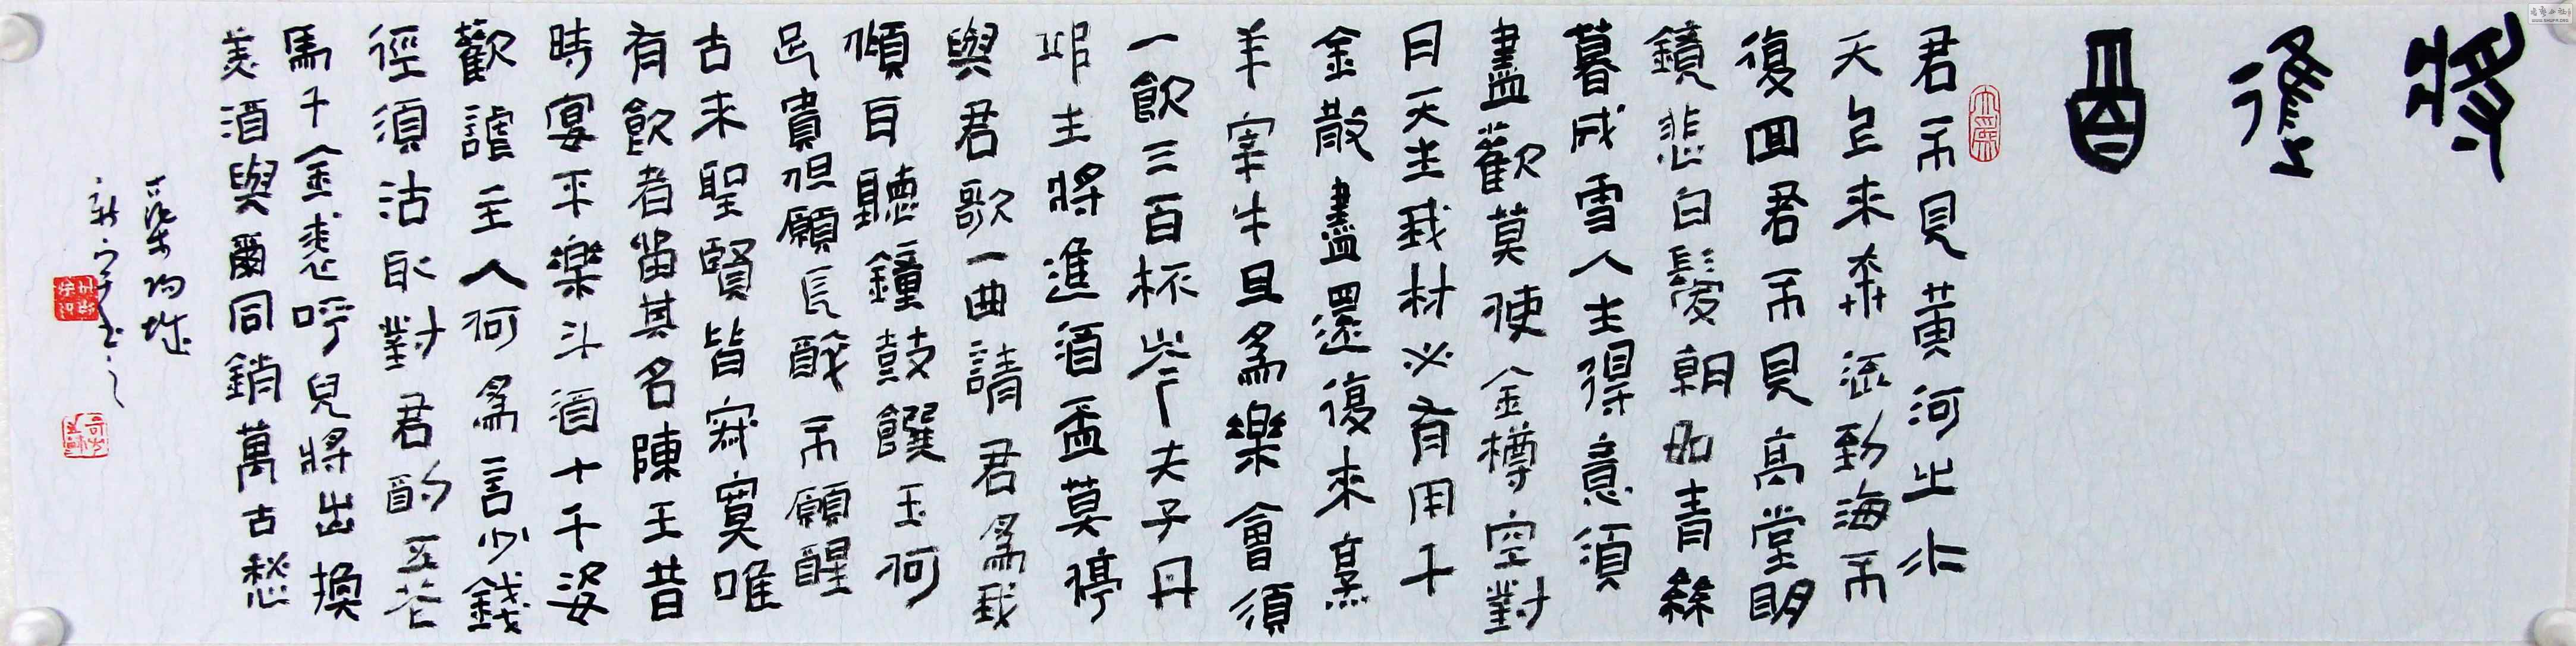 將進酒
君不見黃河之水
天上來奔流到海不
復回君不見高堂明
鏡悲白髮朝如青絲
暮成雪人生得意須
盡歡莫使金樽空對
月天生我材必有用千
金散盡還復來烹
羊宰牛且為樂會須
一飲三百杯岑夫子丹
邱生將進酒盃莫停
與君歌一曲請君為我
傾耳聽鐘鼓饌玉何
足貴但願長醉不願醒
古來聖賢皆寂寞唯
有飲者留其名陳王昔
時宴平樂斗酒十千恣
歡謔主人何為言少錢
徑須沽取對君酌五花
馬千金裘呼兒將出換
美酒與爾同銷萬古愁